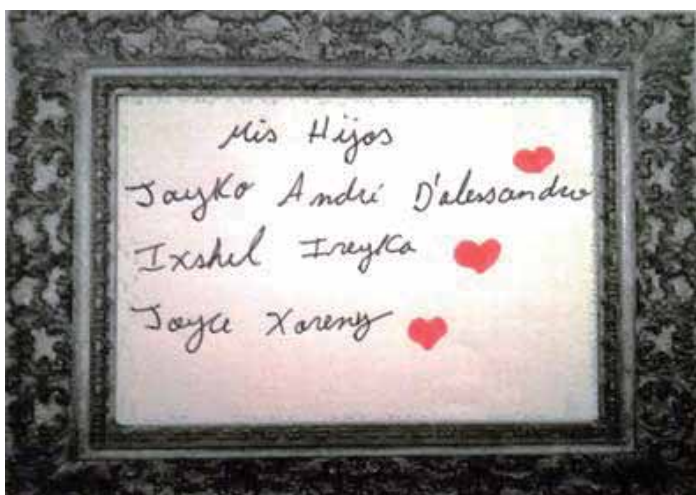 Mis Hijos
Jayko André D'alessandro
Ixshel Ireyka
Joyce Xareny